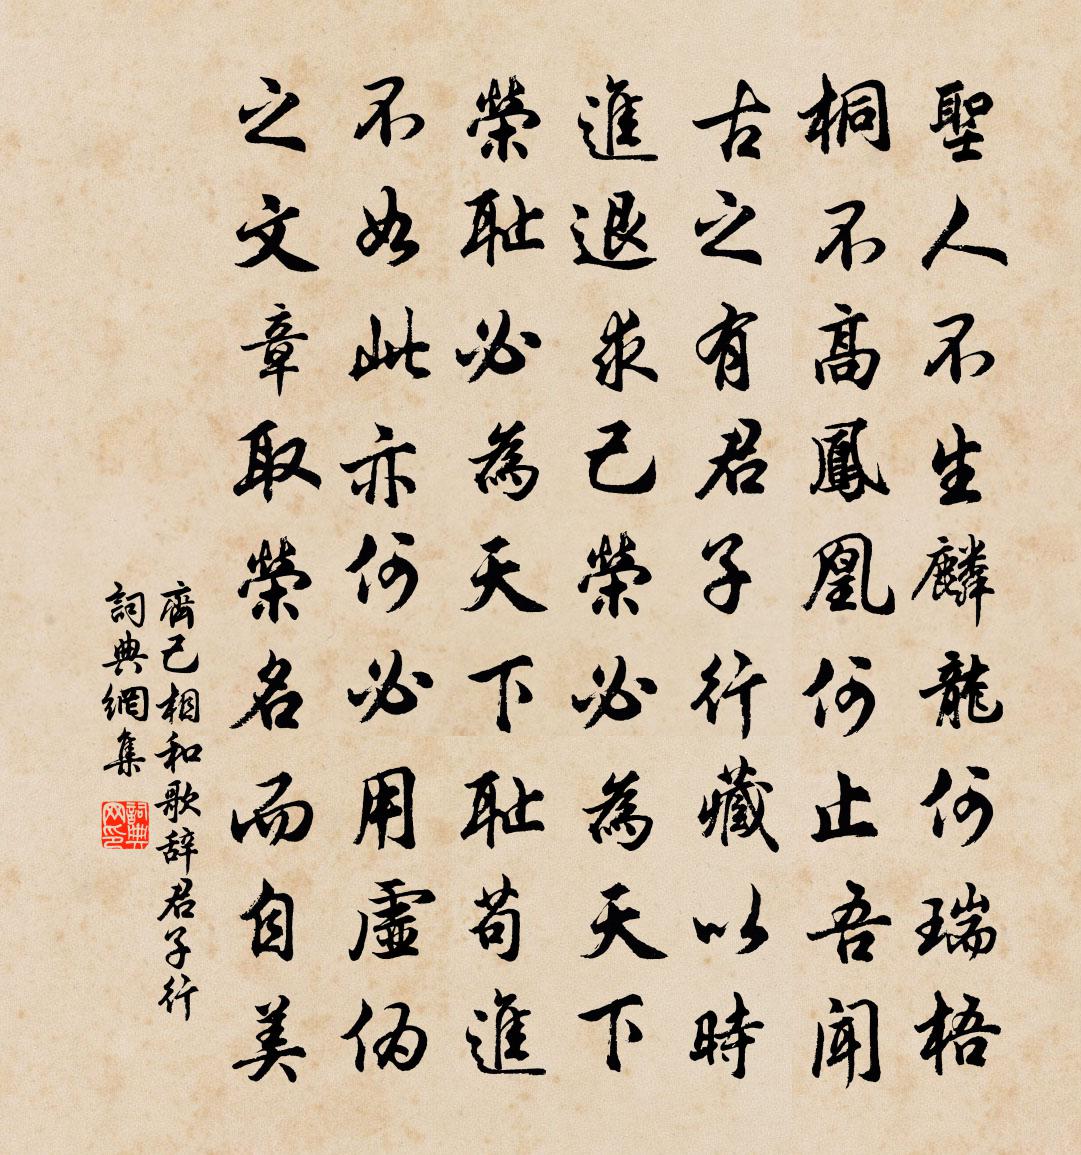 聖人不生麟龍何瑞梧
桐不高鳳凰何止吾聞
古之有君子行藏以時
進退求己榮必為天下
榮恥必為天下恥苟進
不如此亦何必用虛偽
之文章取榮名而自美
齊己相和歌辞君子行
詞典網集
詞典网印